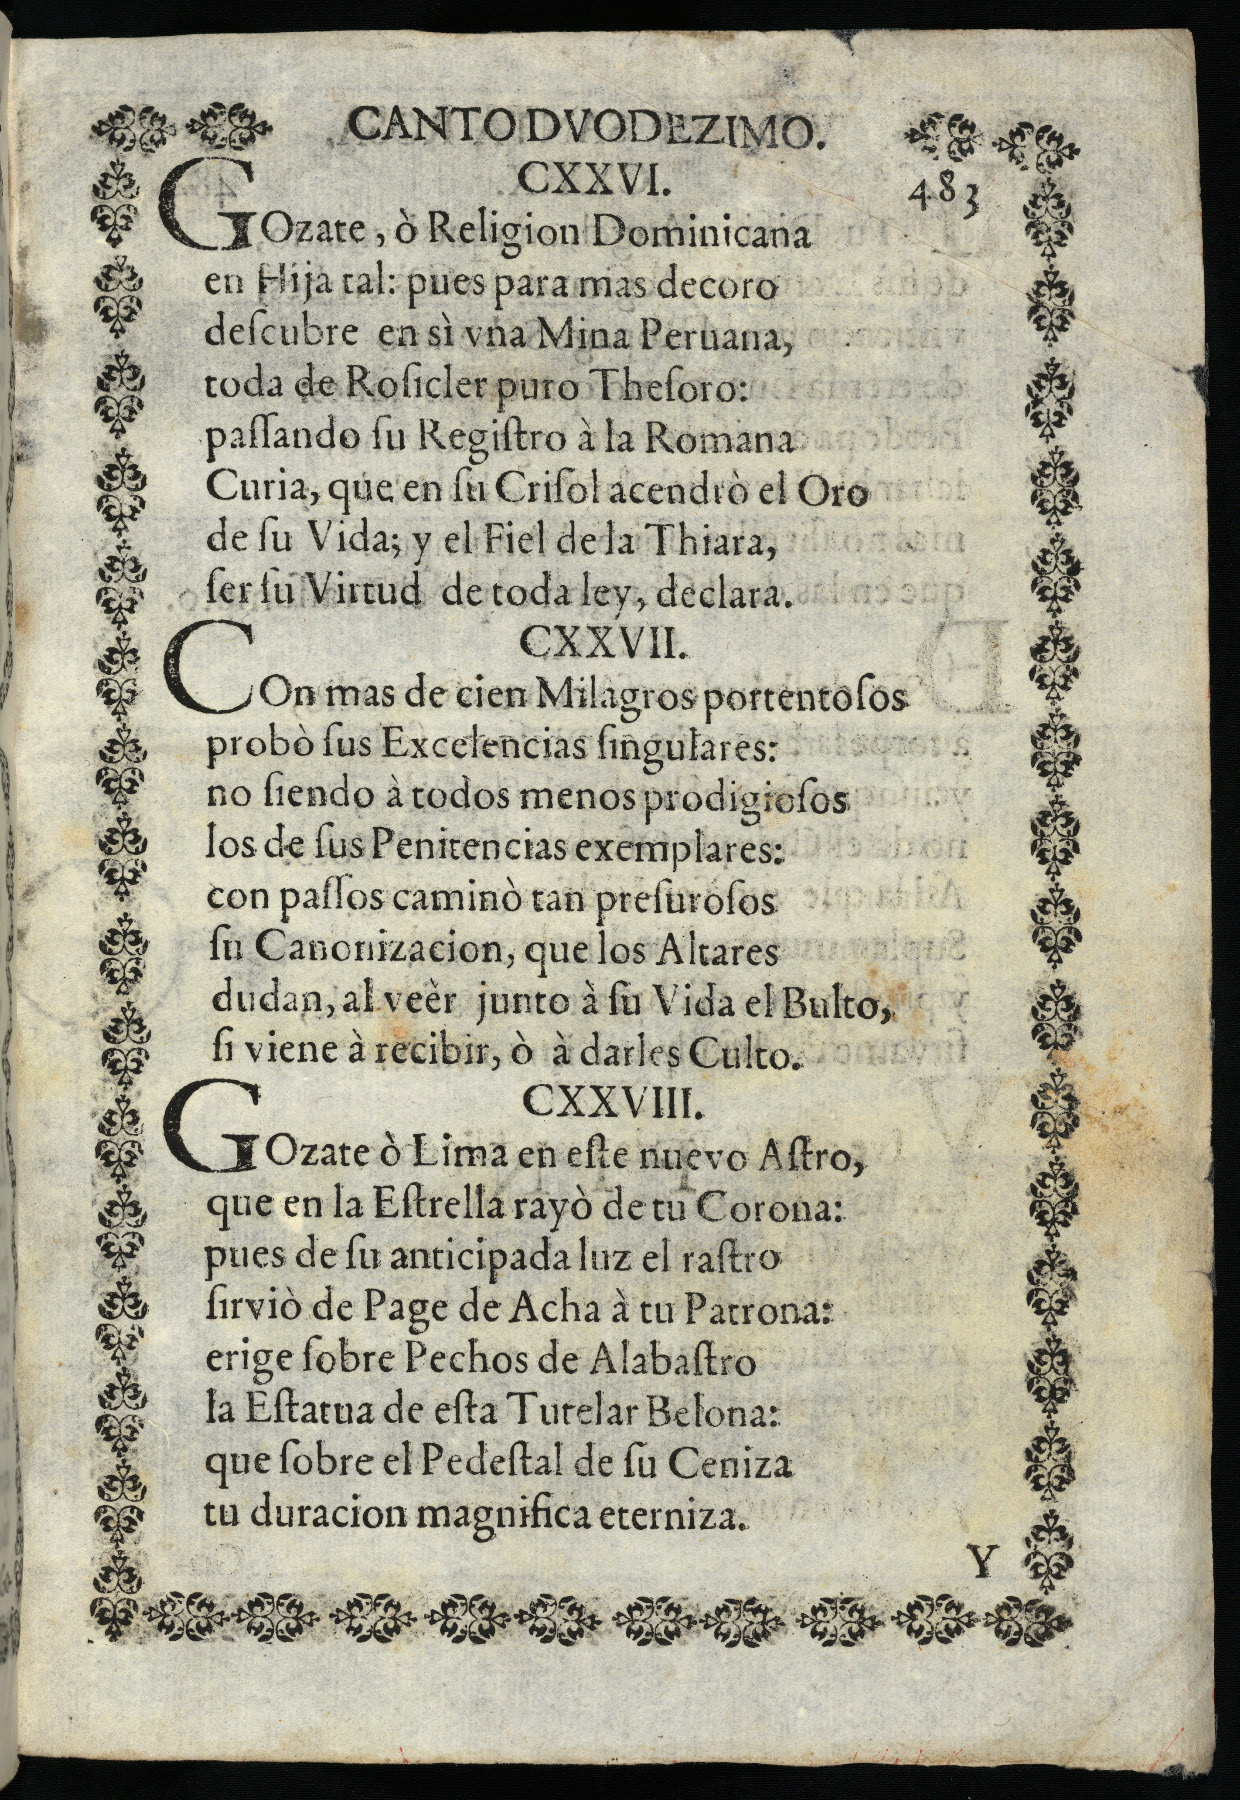 CANTO DVODEZIMO.
483
CXXVI.
GOzate, ò Religion Dominicana
en Hija tal: pues para mas decoro
deſcubre en sì vna Mina Peruana,
toda de Roſicler puro Theſoro:
paſſando ſu Regiſtro à la Romana
Curia, que en ſu Criſol acendrò el Oro
de ſu Vida; y el Fiel de la Thiara,
ſer ſu Virtud de toda ley, declara.
CXXVII.
COn mas de cien Milagros portentoſos
probò ſus Excelencias ſingulares:
no ſiendo à todos menos prodigioſos
los de ſus Penitencias exemplares:
con paſſos caminò tan preſuroſos
ſu Canonizacion, que los Altares
dudan, al veèr junto à ſu Vida el Bulto,
ſi viene à recibir, ò à darles Culto.
CXXVIII.
GOzate ò Lima en eſte nuevo Aſtro,
que en la Eſtrella rayò de tu Corona:
pues de ſu anticipada luz el raſtro
ſirviò de Page de Acha à tu Patrona:
erige ſobre Pechos de Alabaſtro
la Eſtatua de eſta Tutelar Belona:
que ſobre el Pedeſtal de ſu Ceniza
tu duracion magnifica eterniza.
Y